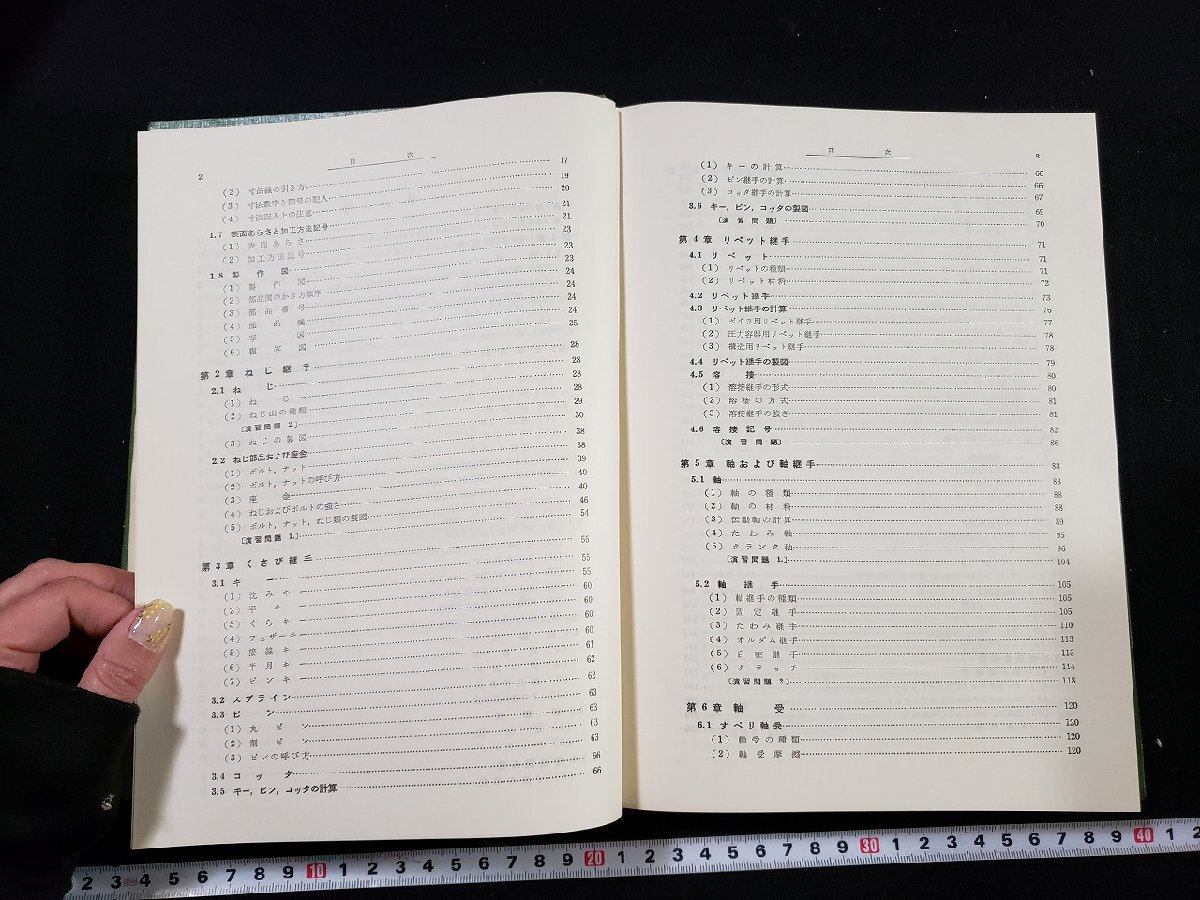 2
目 次
(2) 寸法線の引き方 17
(3) 寸法数字と記号の記入 19
(4) 寸法記入上の注意 20
1.7 表面あらさと加工方法記号 21
(1) 表面あらさ 21
(2) 加工方法記号 23
1.8 製作図 23
(1) 製作図 23
(2) 部品図のかき方順序 24
(3) 部品番号 24
(4) 部品欄 24
(5) 写図 24
(6) 複写図 25
第2章 ねじ継手 28
2.1 ねじ 28
(1) ねじ 28
(2) ねじ山の種類 28
〔演習問題 2.〕 29
(3) ねじの製図 30
2.2 ねじ部品および座金 38
(1) ボルト, ナット 38
(2) ボルト, ナットの呼び方 39
(3) 座金 40
(4) ねじおよびボルトの強さ 40
(5) ボルト, ナット, ねじ類の製図 46
〔演習問題 1.〕 54
第3章 くさび継手 55
3.1 キー 55
(1) 沈みキー 55
(2) 平キー 60
(3) くらキー 60
(4) フェザーキー 60
(5) 接線キー 60
(6) 半月キー 61
(7) ピンキー 62
3.2 スプライン 62
3.3 ピン 63
(1) 丸ピン 63
(2) 割ピン 63
(3) ピンの呼び方 63
3.4 コッタ 66
3.5 キー, ピン, コッタの計算 66
目 次
(1) キーの計算 66
(2) ピン継手の計算 66
(3) コッタ継手の計算 67
3.6 キー, ピン, コッタの製図 69
〔演習問題〕 70
第4章 リベット継手 71
4.1 リベット 71
(1) リベットの種類 71
(2) リベット材料 72
4.2 リベット継手 73
4.3 リベット継手の計算 76
(1) ボイラ用リベット継手 77
(2) 圧力容器用リベット継手 78
(3) 構造用リベット継手 78
4.4 リベット継手の製図 79
4.5 溶接 80
(1) 溶接継手の形式 80
(2) 溶接の方式 81
(3) 溶接継手の強さ 81
4.6 溶接記号 82
〔演習問題〕 86
第5章 軸および軸継手 88
5.1 軸 88
(1) 軸の種類 88
(2) 軸の材料 88
(3) 伝動軸の計算 89
(4) たわみ軸 95
(5) クランク軸 96
〔演習問題 1.〕 104
5.2 軸継手 105
(1) 軸継手の種類 105
(2) 固定継手 105
(3) たわみ継手 110
(4) オルダム継手 113
(5) 自在継手 113
(6) クラッチ 114
〔演習問題 2.〕 118
第6章 軸受 120
6.1 すべり軸受 120
(1) 軸受の種類 120
(2) 軸受摩擦 120
2 3 4 5 6 7 8 9 10 1 2 3 4 5 6 7 8 9 20 1 2 3 4 5 6 7 8 9 30 1 2 3 4 5 6 7 8 9 40 1 2